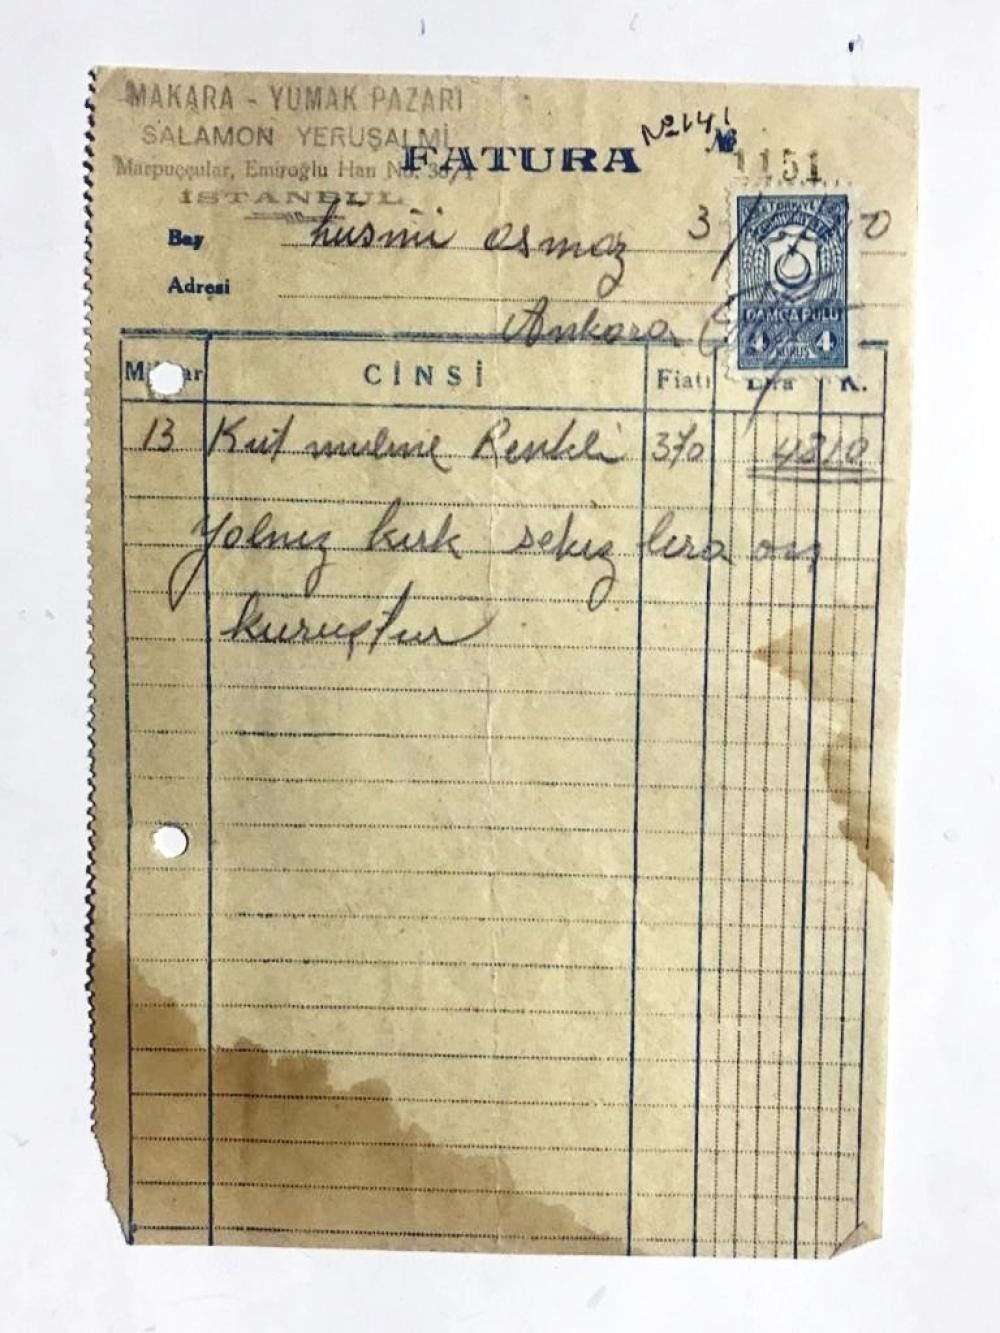 MAKARA - YUMAK PAZARI
SALAMON YERUŞALMİ
Marpuççular, Emiroğlu Han No.
İSTANBUL
FATURA
№ 141
№ 1151
Bay hüsmü osmaz 3
Adresi
Ankara
DAMGA PULU
4 KURUŞ 4
CİNSİ Fiatı Lira K.
13 Kut muline Renkli 370 4810
Yalnız kırk sekiz lira on
kuruştur